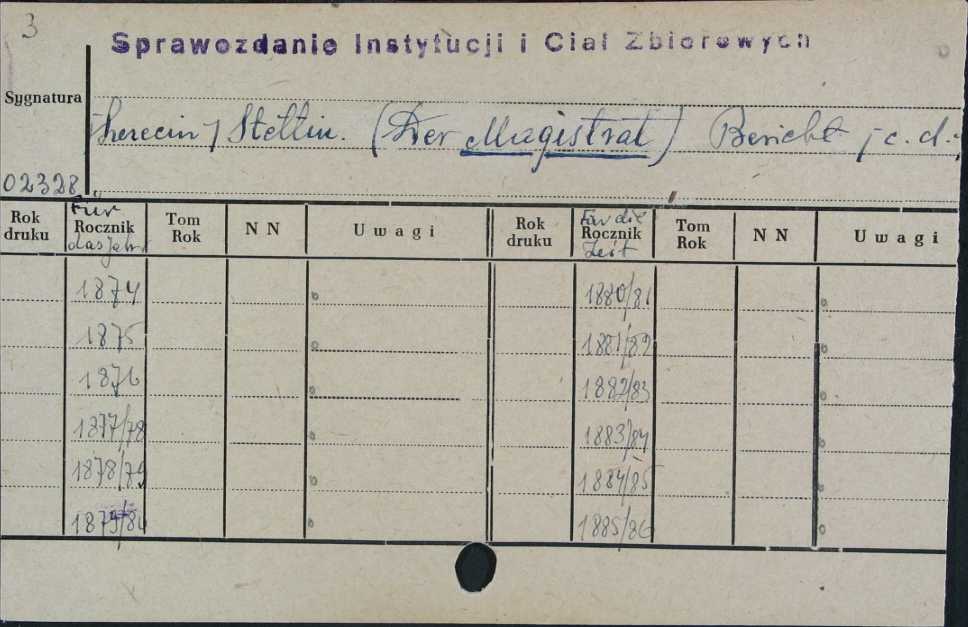 3
Sprawozdanie Instytucji i Ciał Zbiorowych
Sygnatura
Szczecin / Stettin. (Der Magistrat) Bericht, c. d.;
02328
Rok druku Für Rocznik das Jahr Tom Rok N N Uwagi Rok druku Für die Rocznik Zeit Tom Rok N N Uwagi
1874 1880/81
1875 1881/82
1876 1882/83
1877/78 1883/84
1878/79 1884/85
1879/80 1885/86